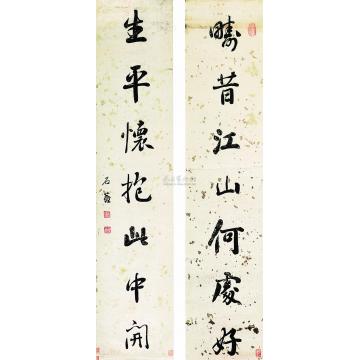 疇昔江山何處好
生平懷抱此中開
石菴